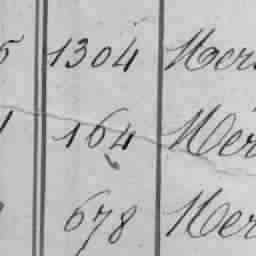 5 1304 Mer
1 164 Mer
678 Mer